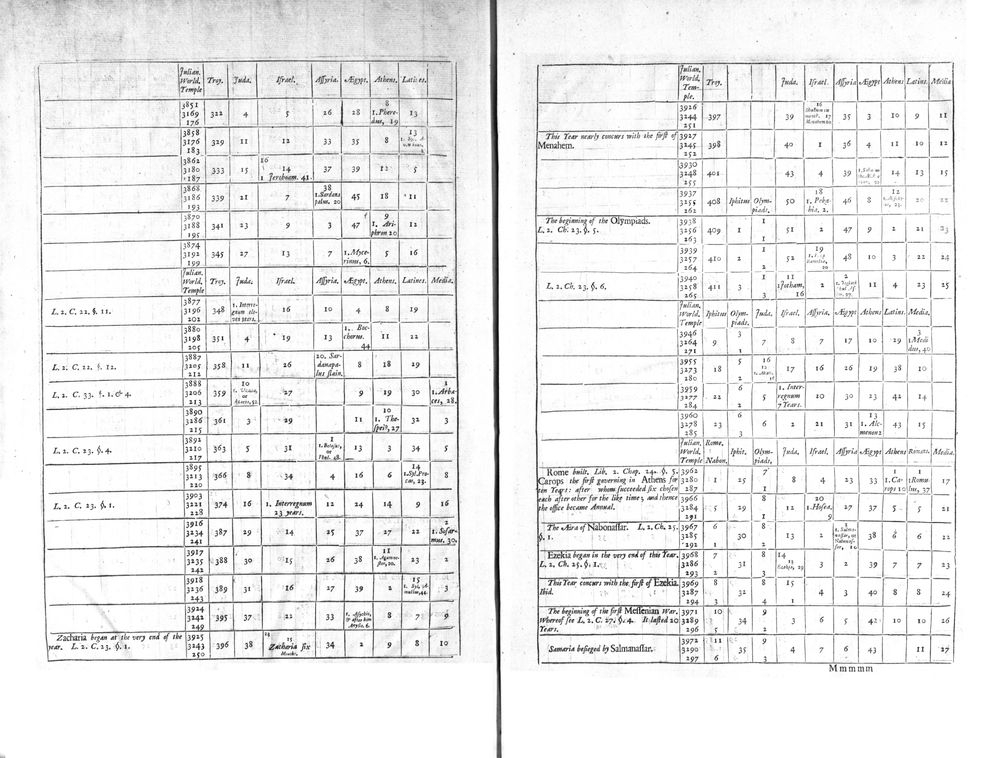 Julian. World, Temple | Troy. | Juda. | Israel. | Assyria. | Ægypt. | Athens. | Latines.
3851 3169 176 | 322 | 4 | 5 | 26 | 28 | 8 1. Pheredus, 19 | 13
3858 3176 183 | 329 | 11 | 12 | 33 | 35 | 8 | 13
3862 3180 187 | 333 | 15 | 16 14 1 Jeroboam. 41. | 37 | 39 | 12 | 5
3868 3186 193 | 339 | 21 | 7 | 38 1. Sardanapalus. 20 | 45 | 18 | 11
3870 3188 195 | 341 | 23 | 9 | 3 | 47 | 9 1. Ariphron 20 | 12
3874 3192 199 | 345 | 27 | 13 | 7 | 1. Mycerinus, 6. | 5 | 16
Julian. World, Temple | Troy. | Juda. | Israel. | Assyria. | Ægypt. | Athens. | Latines. | Media.
L. 2. C. 22. §. 11. | 3877 3196 202 | 348 | 1. Interregnum eleven years. | 16 | 10 | 4 | 8 | 19
3880 3198 205 | 351 | 4 | 19 | 13 | 1. Bocchorus. 44 | 11 | 22
L. 2. C. 22. §. 12. | 3887 3205 212 | 358 | 11 | 26 | 20. Sardanapalus slain. | 8 | 18 | 29
L. 2. C. 33. §. 1. & 4. | 3888 3206 213 | 359 | 10 | 27 | 9 | 19 | 30 | 1 1. Arbaces, 28.
3890 3286 215 | 361 | 3 | 29 | 11 | 10 1. Thespeis, 27 | 32 | 3
L. 2. C. 23. §. 4. | 3892 3210 217 | 363 | 5 | 31 | 1 1. Belosus, or Phul. 48. | 13 | 3 | 34 | 5
3895 3213 220 | 366 | 8 | 34 | 4 | 16 | 6 | 14 1. Syl. Procas, 23. | 8
L. 2. C. 23. §. 1. | 3903 3221 228 | 374 | 16 | 1. Interregnum 23 years. | 12 | 24 | 14 | 9 | 16
3916 3234 241 | 387 | 29 | 14 | 25 | 37 | 27 | 22 | 2 1. Sosarmus. 30.
3917 3235 242 | 388 | 30 | 15 | 26 | 38 | 11 1. Agamnestor, 20. | 23 | 2
3918 3236 243 | 389 | 31 | 16 | 27 | 39 | 2 | 15 | 3
3924 3242 249 | 395 | 37 | 22 | 33 | 8 | 7 | 9
Zacharia began at the very end of the year. L. 2. C. 23. §. 1. | 3925 3243 250 | 396 | 38 | 15 Zacharia six Months. | 34 | 2 | 9 | 8 | 10
Julian. World, Temple. | Troy. | Juda. | Israel. | Assyria | Ægypt | Athens | Latins. | Media
3926 3244 251 | 397 | 39 | 16 | 35 | 3 | 10 | 9 | 11
This Year nearly concurs with the first of Menahem. | 3927 3245 252 | 398 | 40 | 1 | 36 | 4 | 11 | 10 | 12
3930 3248 255 | 401 | 43 | 4 | 39 | 14 | 13 | 15
3937 3255 262 | 408 | Iphitus | Olympiads. | 50 | 18 1. Pekahia, 2. | 46 | 8 | 12 | 20 | 22
The beginning of the Olympiads. L. 2. Ch. 23. §. 5. | 3938 3256 263 | 409 | 1 | 1 1 | 51 | 2 | 47 | 9 | 2 | 21 | 23
3939 3257 264 | 410 | 2 | 1 2 | 52 | 19 20 | 48 | 10 | 3 | 22 | 24
L. 2. Ch. 23. §. 6. | 3940 3258 265 | 411 | 3 | 1 3 | 11 1 Jotham, 16 | 2 | 2 | 11 | 4 | 23 | 25
Julian. World, Temple | Iphitus | Olympiads. | Juda. | Israel. | Assyria. | Ægypt | Athens | Latins. | Media.
3946 3264 271 | 9 | 3 1 | 7 | 8 | 7 | 17 | 10 | 29 | 3 1 Medidus, 40
3955 3273 280 | 18 | 5 2 | 16 | 17 | 16 | 26 | 19 | 38 | 10
3959 3277 284 | 22 | 6 2 | 5 | 1. Interregnum 7 Years. | 10 | 30 | 23 | 42 | 14
3960 3278 285 | 23 | 6 3 | 6 | 2 | 21 | 31 | 13 1. Alcmenon 2 | 43 | 15
Julian. World, Temple | Rome, Nabon. | Iphit. | Olympiads. | Juda. | Israel. | Assyria | Ægypt | Athens | Romans. | Media.
Rome built, Lib. 2. Chap. 24. §. 5. Carops the first governing in Athens for ten Years: after whom succeeded six chosen each after other for the like time; and thence the office became Annual. | 3962 3280 287 | 1 | 25 | 7 1 | 8 | 4 | 23 | 33 | 1 1. Carops 10 | 1 1 Romulus, 37 | 17
3966 3284 291 | 5 | 29 | 8 1 | 12 | 20 1 Hosea, 9 | 27 | 37 | 5 | 5 | 21
The Æra of Nabonassar. L. 2. Ch. 25. §. 1. | 3967 3285 292 | 6 1 | 30 | 8 2 | 13 | 2 | 1 | 38 | 6 | 6 | 22
Ezekia began in the very end of this Year. L. 2. Ch. 25. §. 1. | 3968 3286 293 | 7 2 | 31 | 8 3 | 14 | 3 | 2 | 39 | 7 | 7 | 23
This Year concurs with the first of Ezekia. Ibid. | 3969 3287 294 | 8 3 | 32 | 8 4 | 15 1 | 4 | 3 | 40 | 8 | 8 | 24
The beginning of the first Messenian War. Whereof see L. 2. C. 27. §. 4. It lasted 20 Years. | 3971 3289 296 | 10 5 | 34 | 9 2 | 3 | 6 | 5 | 42 | 10 | 10 | 26
Samaria besieged by Salmanassar. | 3972 3290 297 | 11 6 | 35 | 9 3 | 4 | 7 | 6 | 43 | 11 | 27
Mmmmm